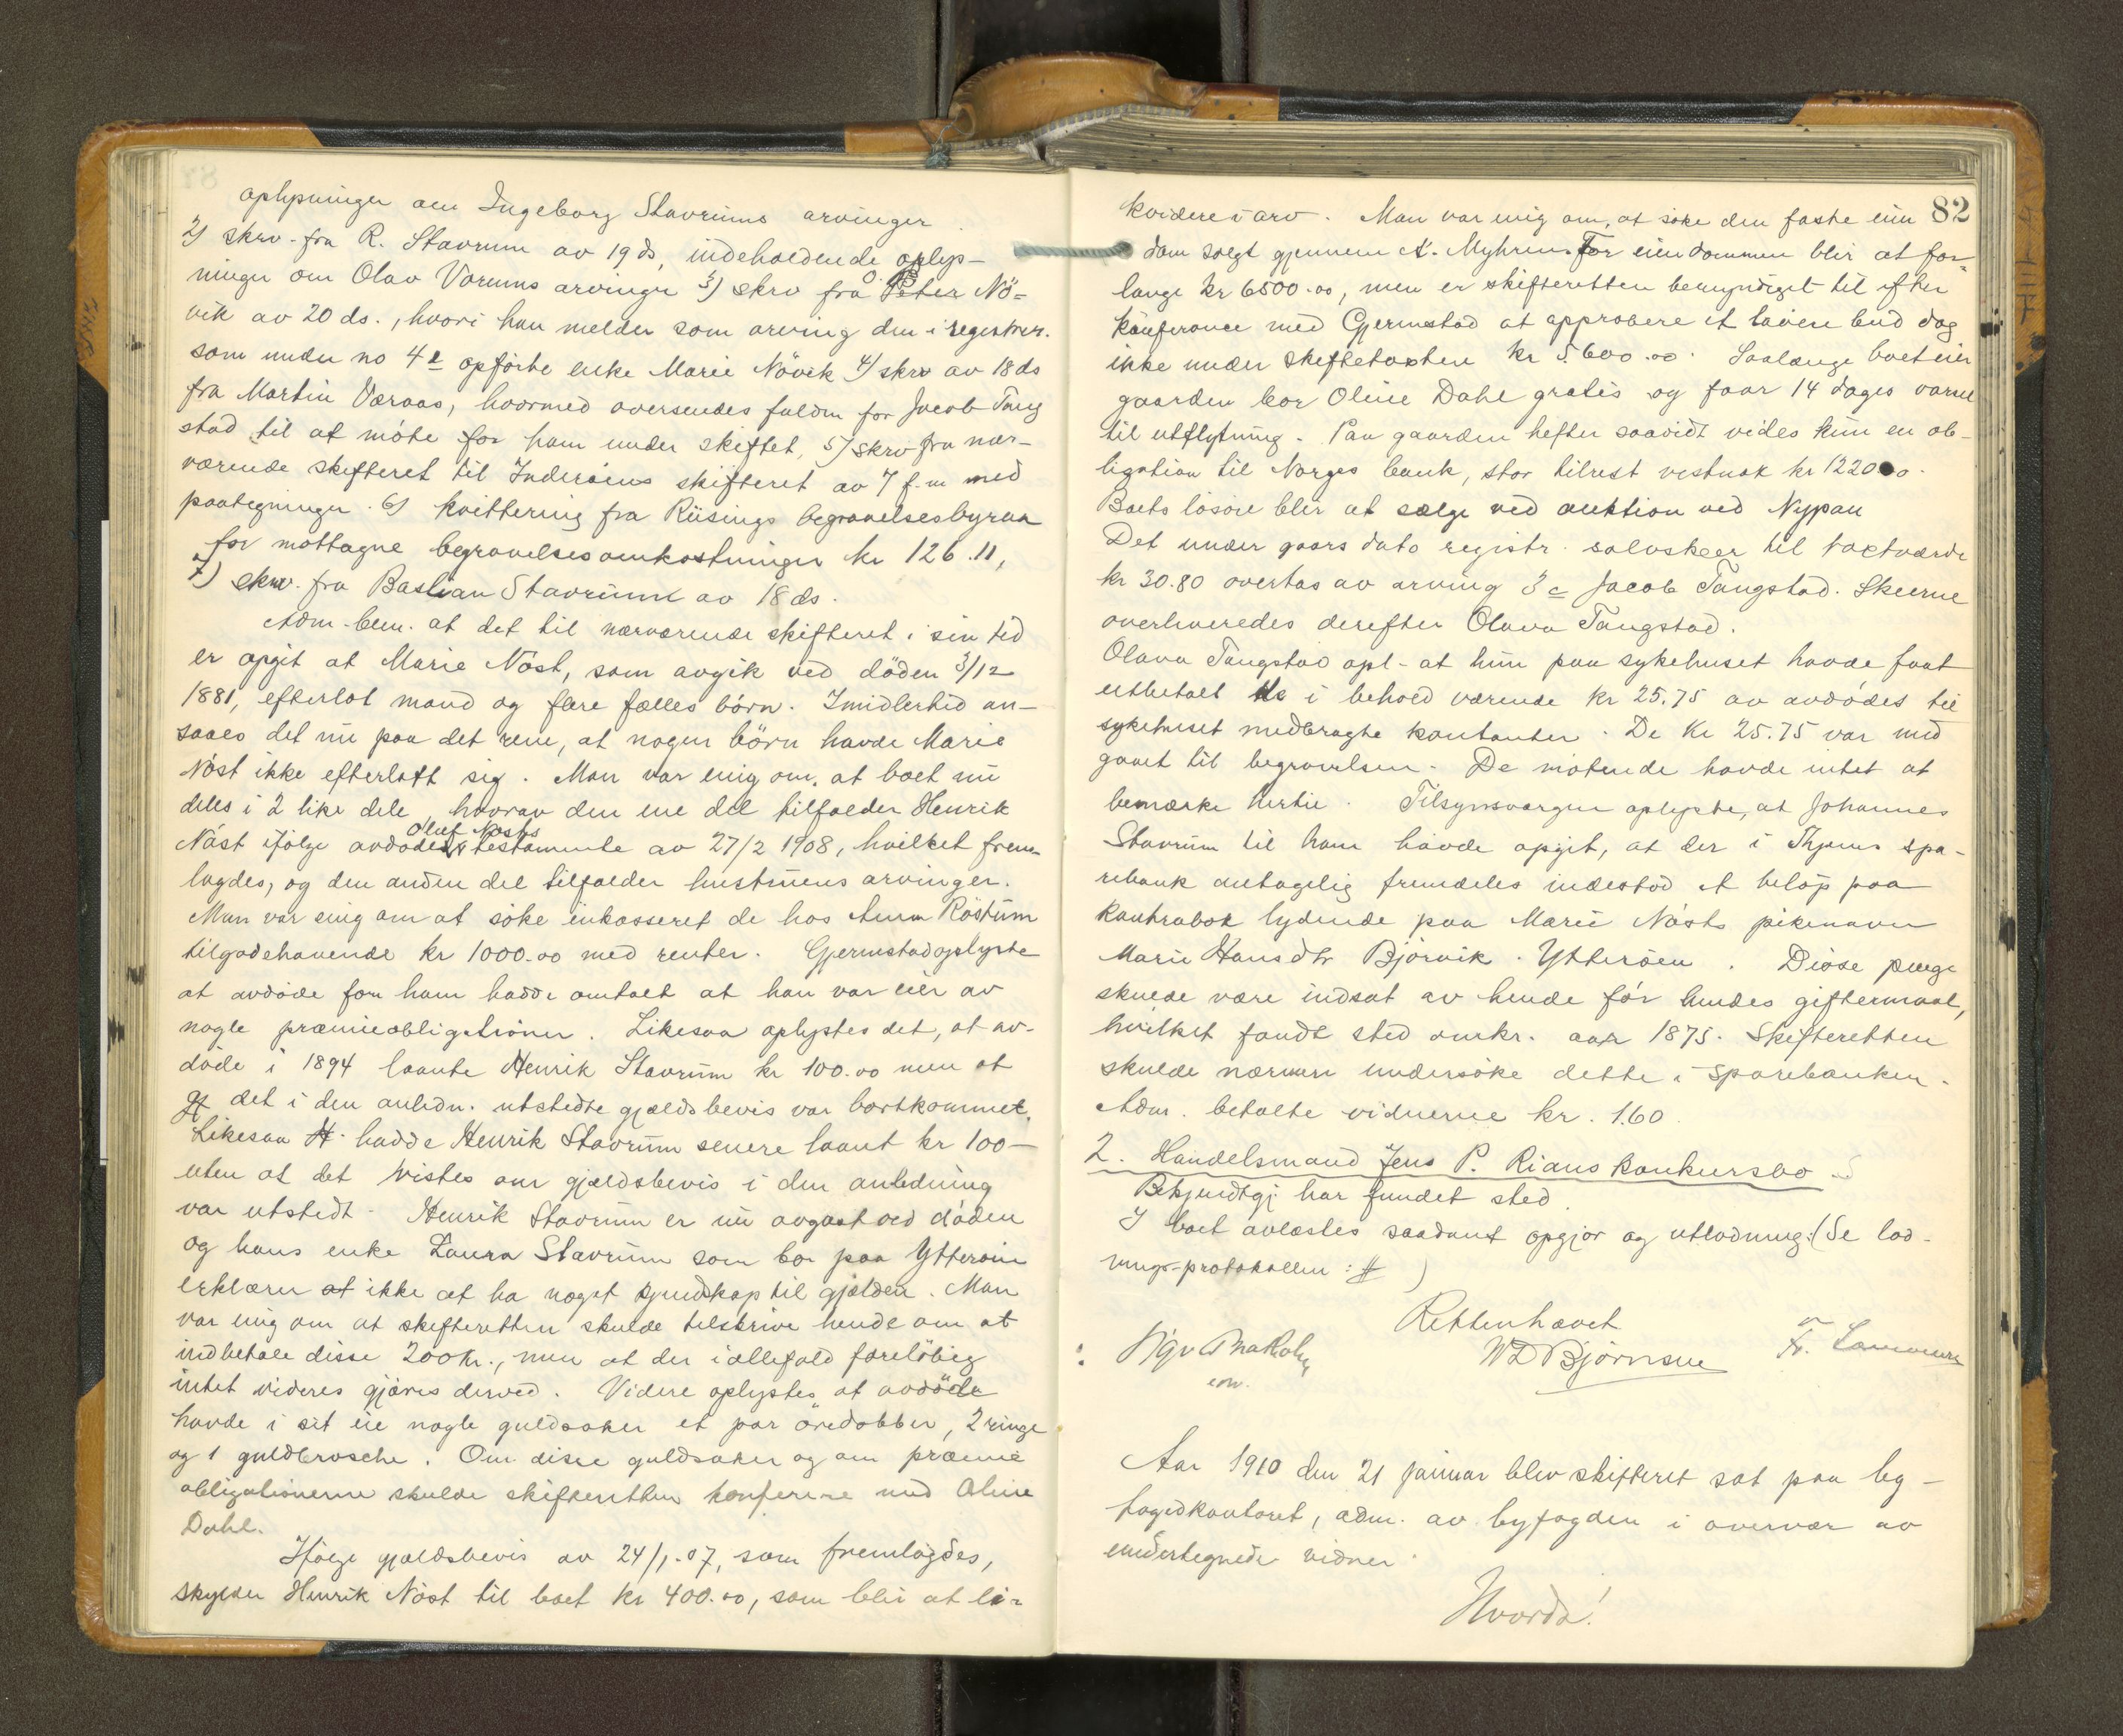 oplysninger om Ingeborg Stavrums arvinger
2) skrv. fra R. Stavrum av 19 ds, indeholdende oplys-
ninger om Olav Vorums arvinger 3) skrv fra O. B. Nö-
vik av 20 ds., hvori han melder som arving den i registrer.
som under no 4e opførte enke Marie Növik 4) skrv av 18 ds
fra Martin Væraas, hvormed oversendes fuldm for Jacob Tang
stad til at møte for ham under skiftet, 5) skrv fra nær-
værende skifteret til Inderøens skifteret av 7 f.m med
paategninger. 6) kvittering fra Riisings begravelsesbyraa
for mottagne begravelsesomkostninger kr 126.11,
7) skrv. fra Bastian Stavrum av 18 ds.
Adm. bem. at det til nærværende skifteret i sin tid
er opgit at Marie Nøst, som avgik ved døden 3/12
1881, efterlot mand og flere fælles børn. Imidlertid an-
saaes det nu paa det rene, at nogen børn havde Marie
Nøst ikke efterlatt sig. Man var enig om, at boet nu
deles i 2 like dele, hvorav den ene del tilfalder Henrik
Oluf Nøsts
Nøst ifølge avdødes testamente av 27/2 1908, hvilket frem-
lagdes, og den anden del tilfalder hustruens arvinger.
Man var enig om at søke inkasseret de hos Anna Röstum
tilgodehavende kr 1000.00 med renter. Gjermstad oplyste
at avdøde for ham hadde omtalt at han var eier av
nogle præmieobligationer. Likesaa oplystes det, at av-
døde i 1894 laante Henrik Stavrum kr 100.00 men at
det i den anledn. utstedte gjældsbevis var bortkommet.
Likesaa hadde Henrik Stavrum senere laant kr 100-
uten at det vistes om gjældsbevis i den anledning
var utstedt. Henrik Stavrum er nu avgaat ved døden
og hans enke Laura Stavrum som bor paa Ytterøen
erklærer at ikke at ha noget kjendskap til gjælden. Man
var enig om at skifteretten skulde tilskrive hende om at
indbetale disse 200 kr., men at der iallefald foreløbig
intet videre gjøres derved. Videre oplystes at avdøde
havde i sit eie nogle guldsaker et par öredobber, 2 ringe
og 1 guldbrosche. Om disse guldsaker og om præmie
obligationerne skulde skifteretten konferere med Oline
Dahl.
Ifølge gjældsbevis av 24/1-07, som fremlagdes,
skylder Henrik Nøst til boet kr 400.00, som blir at li-
82
kvidere i arv. Man var enig om, at søke den faste eien
dom solgt gjennem A. Myhren. For eiendommen blir at for-
lange kr 6500.00, men er skifteretten bemyndiget til efter
konferance med Gjermstad at approbere et lavere bud dog
ikke under skiftetaxten kr 5600.00. Saalænge boet eier
gaarden bor Oline Dahl gratis og faar 14 dages varsel
til utflytning. Paa gaarden hefter saavidt vides kun en ob-
ligation til Norges bank, stor tilrest vistnok kr 1220.00.
Boets løsøre blir at sælge ved auktion ved Nypan
Det under gaars dato registr. sølvskeer til taxtværdi
kr 30.80 overtas av arving 3c Jacob Tangstad. Skeerne
overleveredes derefter Olava Tangstad.
Olava Tangstad opl. at hun paa sykehuset havde faat
utbetalt de i behold værende kr 25.75 av avdødes til
sykehuset medbragte kontanter. De Kr 25.75 var med
gaaet til begravelsen. De møtende havde intet at
bemærke hertil. Tilsynsværgen oplyste, at Johannes
Stavrum til ham havde opgit, at der i Thjems spa-
rebank antagelig fremdeles indestod et beløp paa
kontrabok lydende paa Marie Nøsts pikenavn
Marie Hansdtr Bjørvik. Ytterøen. Disse penge
skulde være indsat av hende før hendes giftermaal,
hvilket fandt sted omkr. aar 1875. Skifteretten
skulde nærmere undersøke dette i sparebanken.
Adm. betalte vidnerne kr. 1.60
2. Handelsmand Jens P. Rians konkursbo
Bekjendtgj. har fundet sted.
I boet avlæstes saadant opgjør og utlodning: (Se lod-
nings-protokollen: )
Retten hævet
WD Bjørnsen
Aar 1910 den 21 januar blev skifteret sat paa by-
fogedkontoret, adm. av byfogden i overvær av
undertegnede vidner.
Hvorda!